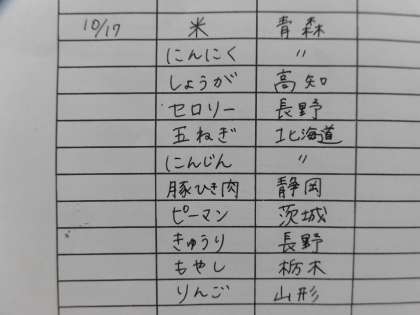 10/17 米 青森
にんにく 〃
しょうが 高知
セロリー 長野
玉ねぎ 北海道
にんじん 〃
豚ひき肉 静岡
ピーマン 茨城
きゅうり 長野
もやし 栃木
りんご 山形